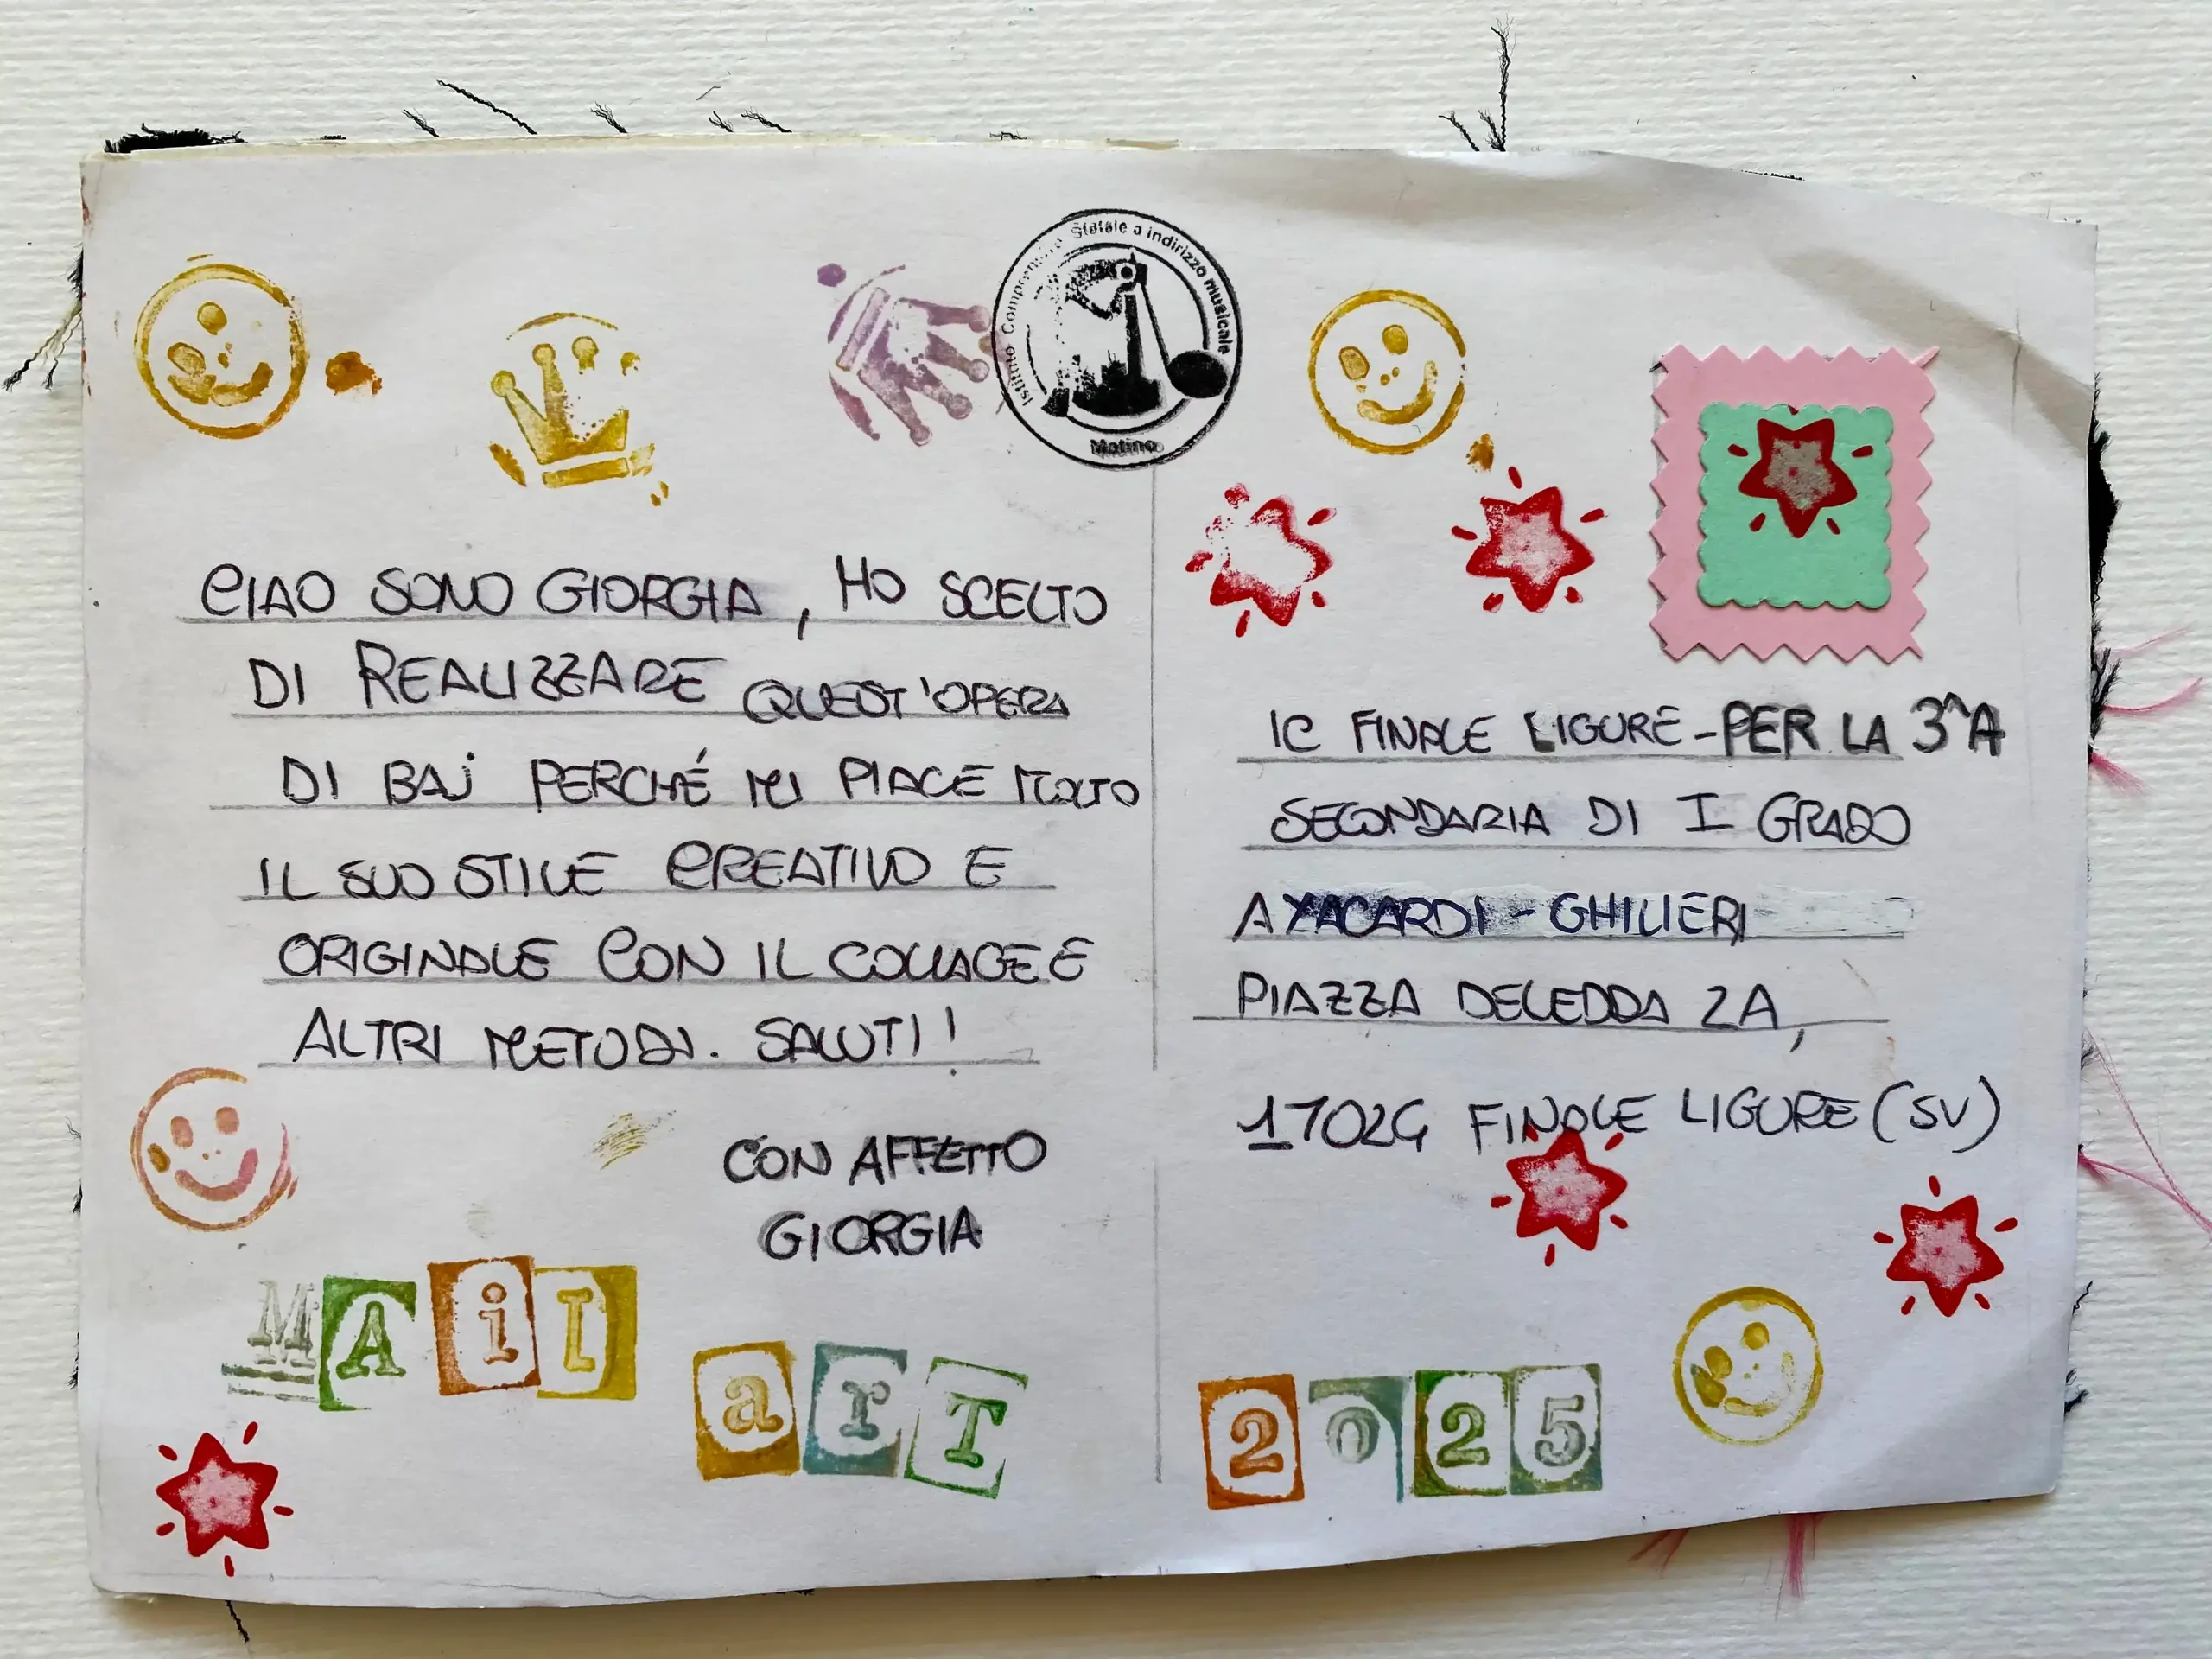 Istituto Comprensivo Statale a indirizzo musicale
Matino
CIAO SONO GIORGIA, HO SCELTO
DI REALIZZARE QUEST'OPERA
DI BAJ PERCHÉ MI PIACE MOLTO
IL SUO STILE CREATIVO E
ORIGINALE CON IL COLLAGE E
ALTRI METODI. SALUTI!
CON AFFETTO
GIORGIA
MAiL
arT
IC FINALE LIGURE-PER LA 3^A
SECONDARIA DI I GRADO
AYACARDI-GHILIERI
PIAZZA DELEDDA 2A,
17024 FINALE LIGURE (SV)
2025